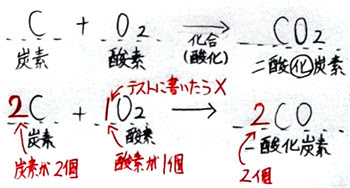 C + O₂ → CO₂
炭素 酸素 化合(酸化) 二酸化炭素
テストに書いたら×
2C + 1O₂ → 2CO
炭素 酸素 一酸化炭素
炭素が2個 酸素が1個 2個